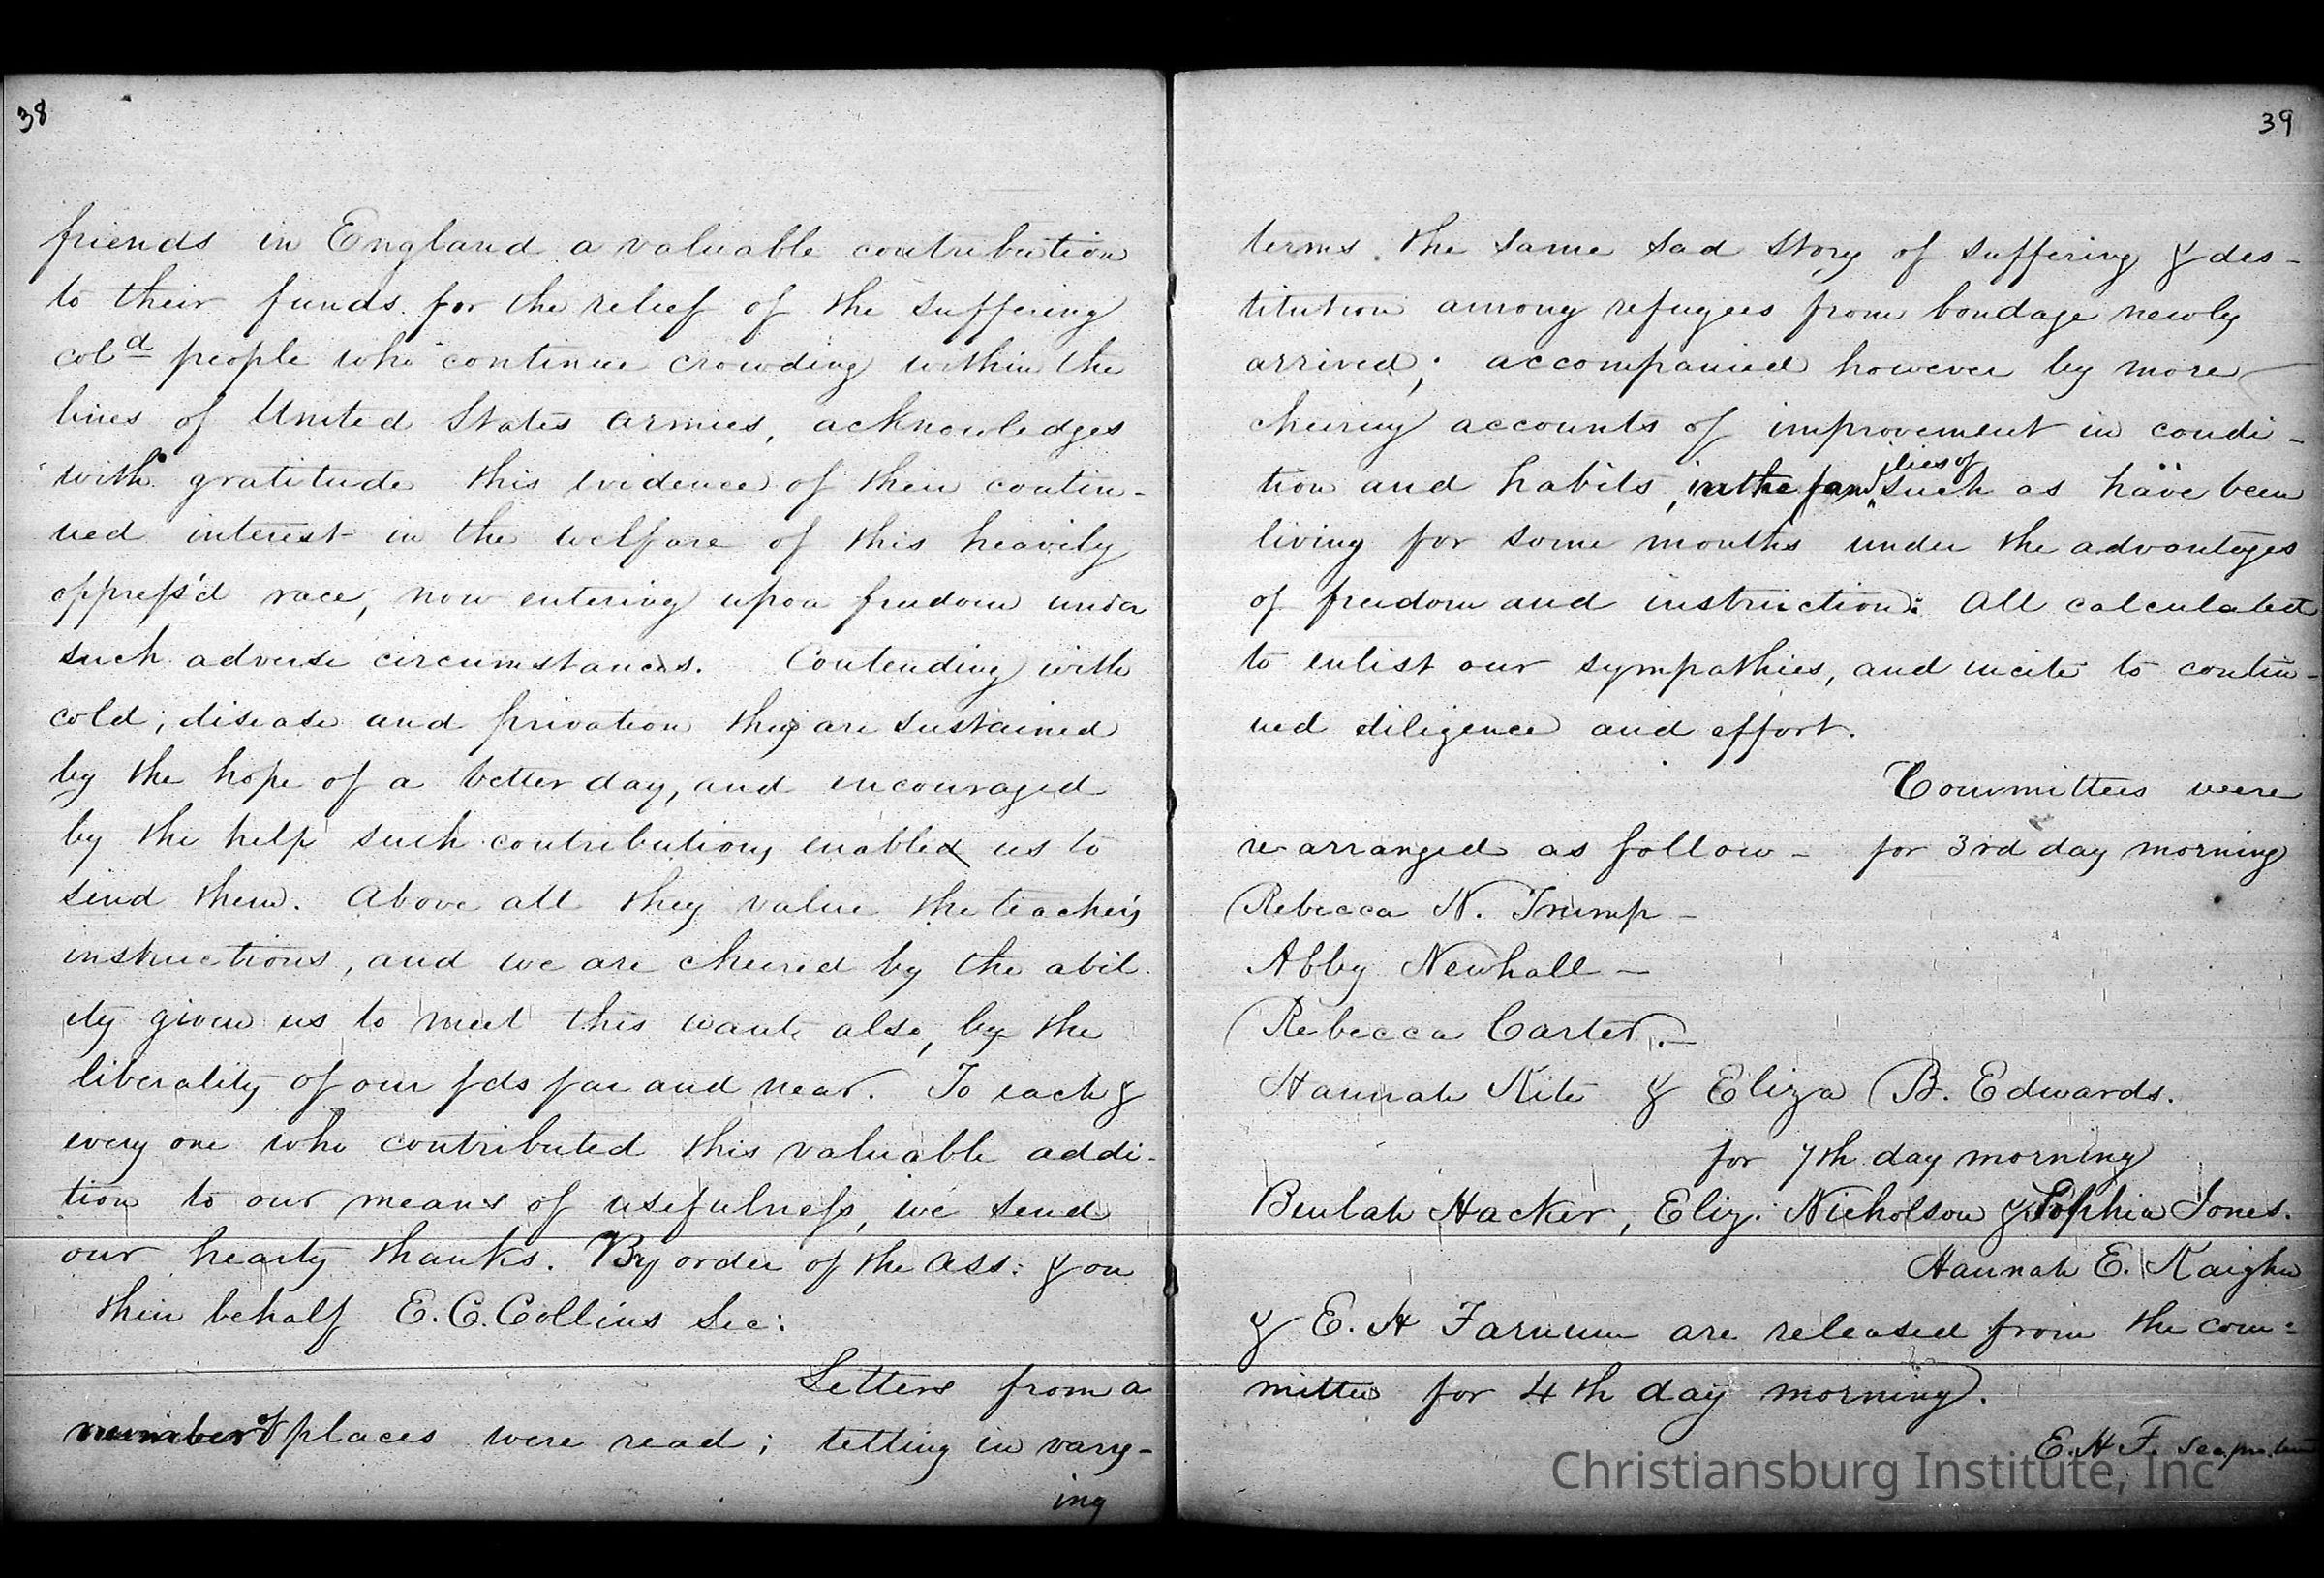 38
friends in England a valuable contribution
to their funds for the relief of the suffering
cold people who continue crowding within the
lines of United States armies, acknowledges
with gratitude this evidence of their contin-
ued interest in the welfare of this heavily
oppress'd race, now entering upon freedom under
such adverse circumstances. Contending with
cold, disease and privation they are sustained
by the hope of a better day, and encouraged
by the help such contributions enable us to
send them. Above all they value the teacher's
instructions, and we are cheered by the abil-
ity given us to meet this want also, by the
liberality of our fds far and near. To each &
every one who contributed this valuable addi-
tion to our means of usefulness, we send
our hearty thanks. By order of the Ass: & on
their behalf E. C. Collins Sec:
Letters from a
number of places were read; telling in vary-
ing
39
terms the same sad story of suffering & des-
titution among refugees from bondage newly
arrived; accompanied however by more
cheering accounts of improvement in condi-
tion and habits, in the families of such as have been
living for some months under the advantages
of freedom and instruction: All calculated
to enlist our sympathies, and incite to contin-
ued diligence and effort.
Committees were
re-arranged as follow - for 3rd day morning
Rebecca N. Trump -
Abby Newhall -
Rebecca Carter. -
Hannah Kite & Eliza B. Edwards.
for 7th day morning
Beulah Hacker, Eliz: Nicholson & Sophia Jones.
Hannah E. Kaighn
& E. H Farnum are released from the com=
mittee for 4th day morning.
E. H. F. Sec pro. tem
Christiansburg Institute, Inc